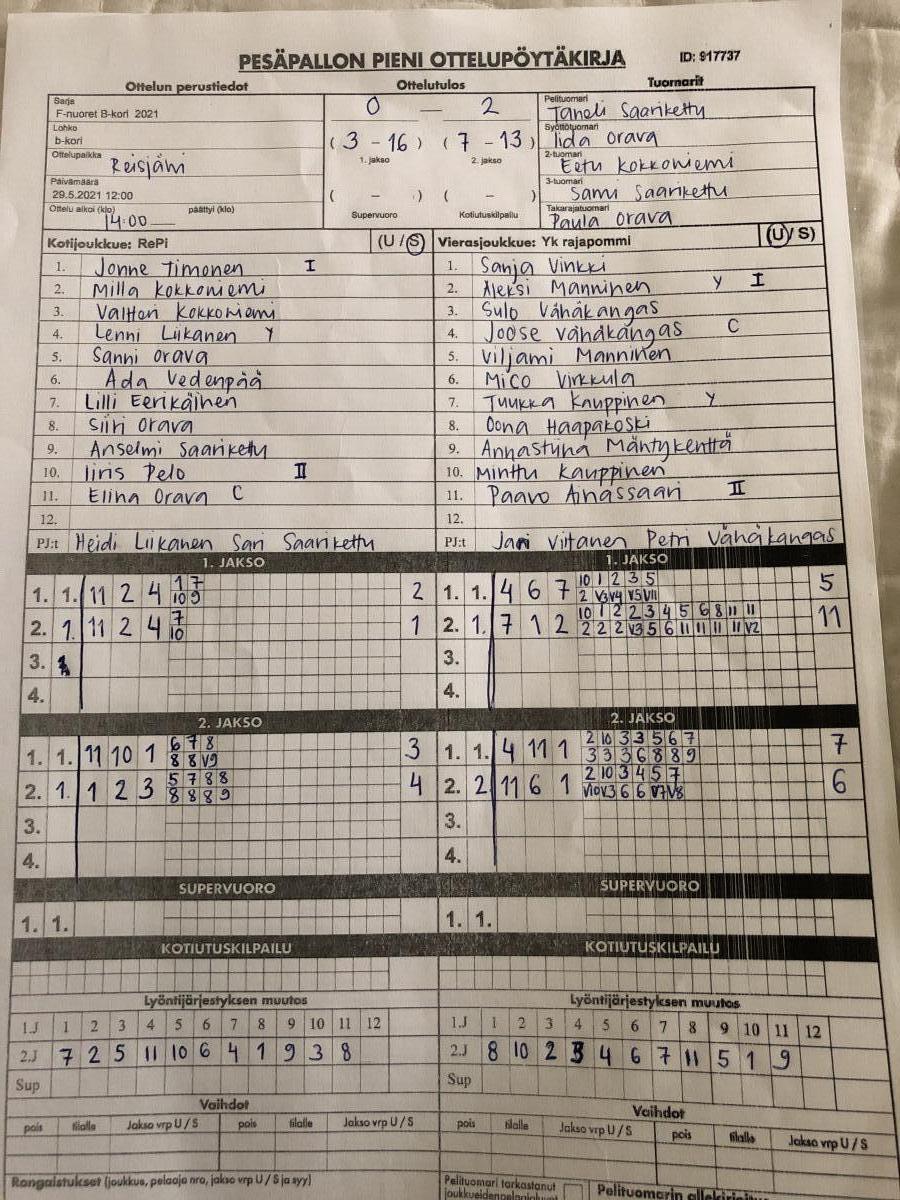 PESÄPALLON PIENI OTTELUPÖYTÄKIRJA ID: 917737
Ottelun perustiedot Ottelutulos Tuomarit
Sarja
F-nuoret B-kori 2021
Lohko
b-kori
Ottelupaikka Reisjärvi
Päivämäärä
29.5.2021 12:00
Ottelu alkoi (klo) päättyi (klo)
14:00
0 — 2
(3 - 16) (7 - 13)
1. jakso 2. jakso
( - ) ( - )
Supervuoro Kotiutuskilpailu
Pelituomari
Taneli Saarikettu
Syöttötuomari
Iida Orava
2-tuomari
Eetu Kokkoniemi
3-tuomari
Sami Saarikettu
Takarajatuomari
Paula Orava
Kotijoukkue: RePi (U / S)
1. Jonne Timonen I
2. Milla Kokkoniemi
3. Valtteri Kokkoniemi
4. Lenni Liikanen Y
5. Sanni Orava
6. Ada Vedenpää
7. Lilli Eerikäinen
8. Siiri Orava
9. Anselmi Saarikettu
10. Iiris Pelo II
11. Elina Orava C
12.
PJ:t Heidi Liikanen Sari Saarikettu
Vierasjoukkue: Yk rajapommi (U / S)
1. Sanja Vinkki
2. Aleksi Manninen Y I
3. Sulo Vähäkangas
4. Joose Vähäkangas C
5. Viljami Manninen
6. Mico Virkkula
7. Tuukka Kauppinen Y
8. Oona Haapakoski
9. Annastiina Mäntykenttä
10. Minttu Kauppinen
11. Paavo Ainassaari II
12.
PJ:t Jari Viitanen Petri Vähäkangas
1. JAKSO
1. 1. 11 2 4 1 7 2
10 9
2. 1. 11 2 4 7 1
10
3.
4.
1. JAKSO
1. 1. 4 6 7 10 1 2 3 5 5
2 V3 V4 V5 V11
2. 1. 7 1 2 10 1 2 2 3 4 5 6 8 11 11 11
2 2 2 V3 5 6 11 11 11 11 V2
3.
4.
2. JAKSO
1. 1. 11 10 1 6 7 8 3
8 8 V9
2. 1. 1 2 3 5 7 8 8 4
8 8 8 9
3.
4.
2. JAKSO
1. 1. 4 11 1 2 10 3 3 5 6 7 7
3 3 3 6 8 8 9
2. 2 11 6 1 2 10 3 4 5 7 6
V10 V3 6 6 V7 V8
3.
4.
SUPERVUORO
1. 1.
SUPERVUORO
1. 1.
KOTIUTUSKILPAILU
KOTIUTUSKILPAILU
Lyöntijärjestyksen muutos
1.J 1 2 3 4 5 6 7 8 9 10 11 12
2.J 7 2 5 11 10 6 4 1 9 3 8
Sup
Lyöntijärjestyksen muutos
1.J 1 2 3 4 5 6 7 8 9 10 11 12
2.J 8 10 2 3 4 6 7 11 5 1 9
Sup
Vaihdot
pois tilalle Jakso vrp U / S pois tilalle Jakso vrp U / S
Vaihdot
pois tilalle Jakso vrp U / S pois tilalle Jakso vrp U / S
Rangaistukset (joukkue, pelaaja nro, jakso vrp U / S ja syy)
Pelituomari tarkastanut
Pelituomarin